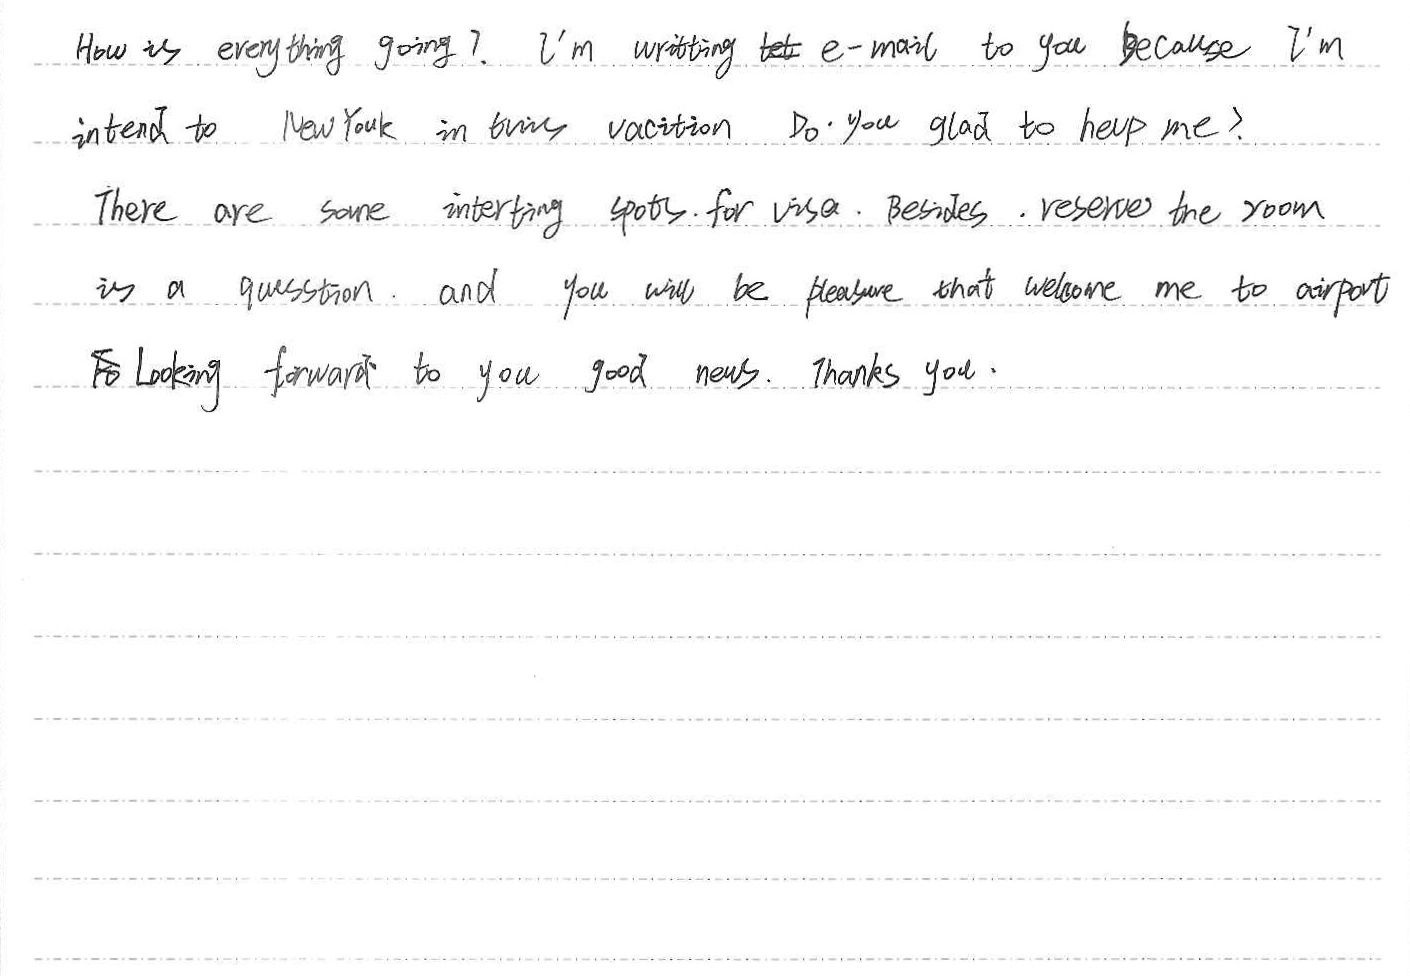 How is everything going? I'm writting e-mail to you because I'm
intend to New Youk in this vacition Do. you glad to help me?
There are some interting spots. for visa. Besides. reserve the room
is a quesstion. and you will be pleasure that welcome me to airport
Looking forward to you good news. Thanks you.